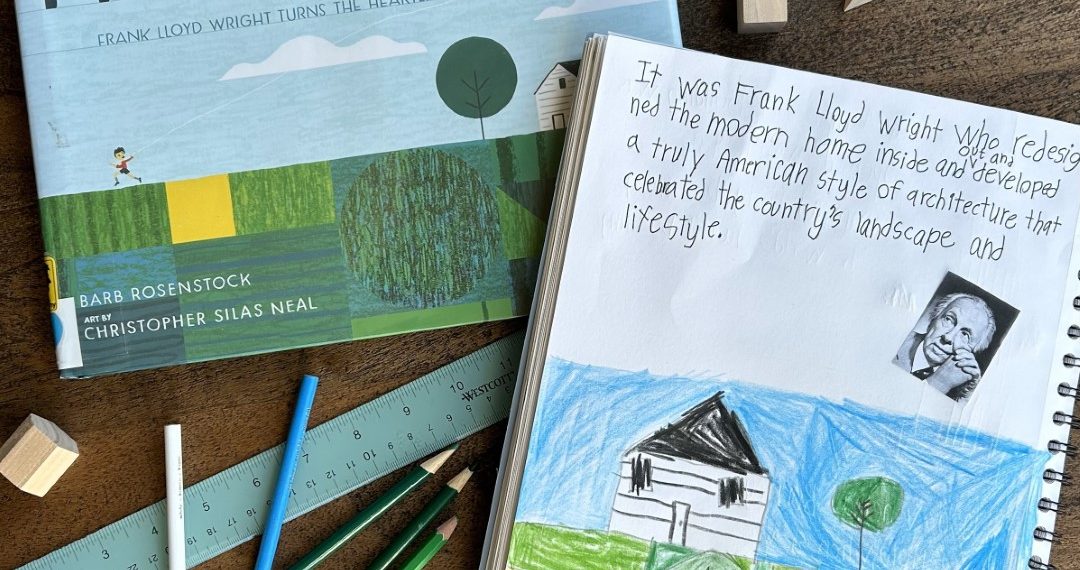 FRANK LLOYD WRIGHT TURNS THE
BARB ROSENSTOCK
ART BY
CHRISTOPHER SILAS NEAL
It was Frank Lloyd Wright who redesig
ned the modern home inside and out and developed
a truly American style of architecture that
celebrated the country's landscape and
lifestyle.
WESTCOTT
3 4 5 6 7 8 9 10 11